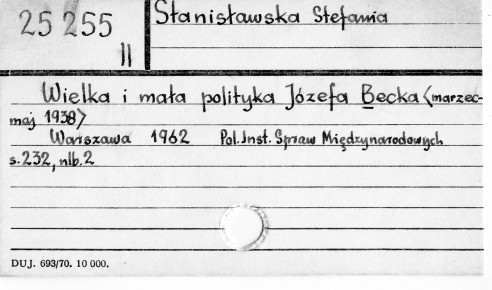 25 255
II
Stanisławska Stefania
Wielka i mała polityka Józefa Becka <marzec-
maj 1938>
Warszawa 1962 Pol. Inst. Spraw Międzynarodowych
s. 232, nlb. 2
DUJ. 693/70. 10 000.